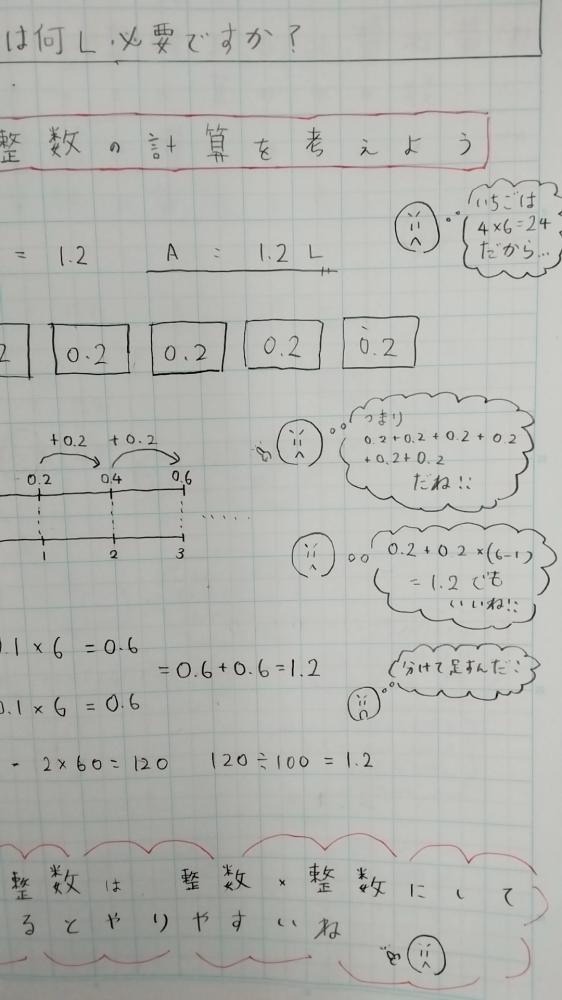 は何L必要ですか?
整数の計算を考えよう
いちごは
4×6=24
だから…
= 1.2 A : 1.2 L
2 0.2 0.2 0.2 0.2
つまり
0.2+0.2+0.2+0.2
+0.2+0.2
だね!!
+0.2 +0.2
0.2 0.4 0.6
1 2 3
0.2+0.2×(6-1)
=1.2でも
いいね!!
.1×6=0.6
=0.6+0.6=1.2
分けて足すんだ
0.1×6=0.6
2×60=120 120÷100=1.2
整数は 整数×整数にして
るとやりやすいね